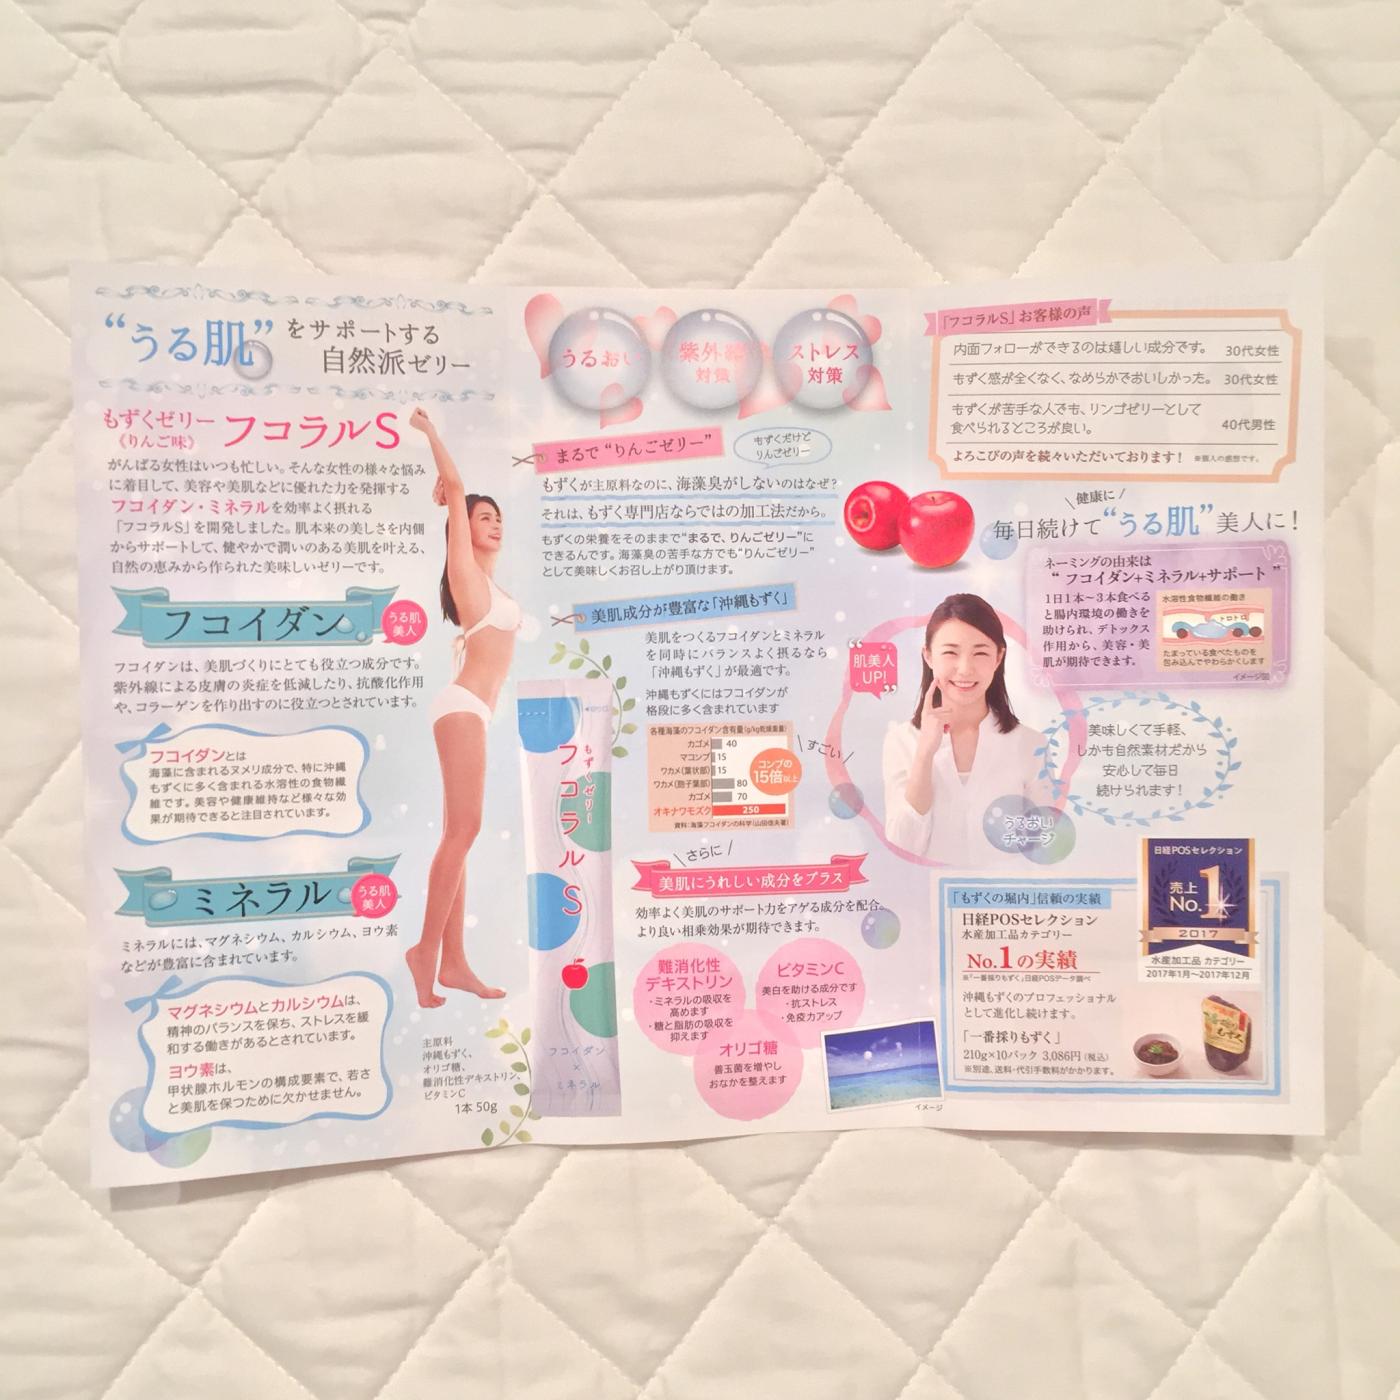 “うる肌”をサポートする
自然派ゼリー
もずくゼリー
《りんご味》
フコラルS
がんばる女性はいつも忙しい。そんな女性の様々な悩み
に着目して、美容や美肌などに優れた力を発揮する
フコイダン・ミネラルを効率よく摂れる
「フコラルS」を開発しました。肌本来の美しさを内側
からサポートして、健やかで潤いのある美肌を叶える、
自然の恵みから作られた美味しいゼリーです。
フコイダン
うる肌
美人
フコイダンは、美肌づくりにとても役立つ成分です。
紫外線による皮膚の炎症を低減したり、抗酸化作用
や、コラーゲンを作り出すのに役立つとされています。
フコイダンとは
海藻に含まれるヌメリ成分で、特に沖縄
もずくに多く含まれる水溶性の食物繊
維です。美容や健康維持など様々な効
果が期待できると注目されています。
ミネラル
うる肌
美人
ミネラルには、マグネシウム、カルシウム、ヨウ素
などが豊富に含まれています。
マグネシウムとカルシウムは、
精神のバランスを保ち、ストレスを緩
和する働きがあるとされています。
ヨウ素は、
甲状腺ホルモンの構成要素で、若さ
と美肌を保つために欠かせません。
主原料
沖縄もずく、
オリゴ糖、
難消化性デキストリン、
ビタミンC
1本 50g
うるおい
紫外線
対策
ストレス
対策
まるで“りんごゼリー”
もずくだけど
りんごゼリー
もずくが主原料なのに、海藻臭がしないのはなぜ?
それは、もずく専門店ならではの加工法だから。
もずくの栄養をそのままで“まるで、りんごゼリー”に
できるんです。海藻臭の苦手な方でも“りんごゼリー”
として美味しくお召し上がり頂けます。
美肌成分が豊富な「沖縄もずく」
美肌をつくるフコイダンとミネラル
を同時にバランスよく摂るなら
「沖縄もずく」が最適です。
沖縄もずくにはフコイダンが
格段に多く含まれています
各種海藻のフコイダン含有量(g/kg乾燥重量)
カゴメ 40
マコンブ 15
ワカメ(葉状部) 15
ワカメ(胞子葉部) 80
カゴメ 70
オキナワモズク 250
コンブの
15倍以上
資料:海藻フコイダンの科学(山田信夫著)
すごい
もずくゼリー
フコラルS
フコイダン
×
ミネラル
さらに
美肌にうれしい成分をプラス
効率よく美肌のサポート力をアゲる成分を配合。
より良い相乗効果が期待できます。
難消化性
デキストリン
・ミネラルの吸収を
高めます
・糖と脂肪の吸収を
抑えます
ビタミンC
美白を助ける成分です
・抗ストレス
・免疫力アップ
オリゴ糖
善玉菌を増やし
おなかを整えます
イメージ
「フコラルS」お客様の声
内面フォローができるのは嬉しい成分です。 30代女性
もずく感が全くなく、なめらかでおいしかった。 30代女性
もずくが苦手な人でも、リンゴゼリーとして
食べられるところが良い。 40代男性
よろこびの声を続々いただいております! ※個人の感想です。
健康に
毎日続けて“うる肌”美人に!
ネーミングの由来は
“フコイダン+ミネラル+サポート”
1日1本~3本食べる
と腸内環境の働きを
助けられ、デトックス
作用から、美容・美
肌が期待できます。
水溶性食物繊維の働き
トロトロ
たまっている食べたものを
包み込んでやわらかくします
イメージ図
肌美人
UP!
美味しくて手軽、
しかも自然素材だから
安心して毎日
続けられます!
うるおい
チャージ
「もずくの堀内」信頼の実績
日経POSセレクション
水産加工品カテゴリー
No.1の実績
※「一番採りもずく」日経POSデータ調べ
沖縄もずくのプロフェッショナル
として進化し続けます。
「一番採りもずく」
210g×10パック 3,086円(税込)
※別途、送料・代引手数料がかかります。
日経POSセレクション
売上
No.1
2017
水産加工品 カテゴリー
2017年1月~2017年12月